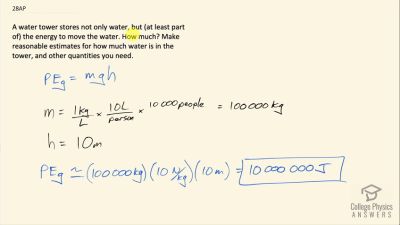 28AP
A water tower stores not only water, but (at least part
of) the energy to move the water. How much? Make
reasonable estimates for how much water is in the
tower, and other quantities you need.
PEg = mgh
m = 1kg/L × 10L/person × 10 000 people = 100 000 kg
h = 10m
PEg ≃ (100 000 kg)(10 N/kg)(10m) = 10 000 000 J
College Physics
ANSWERS